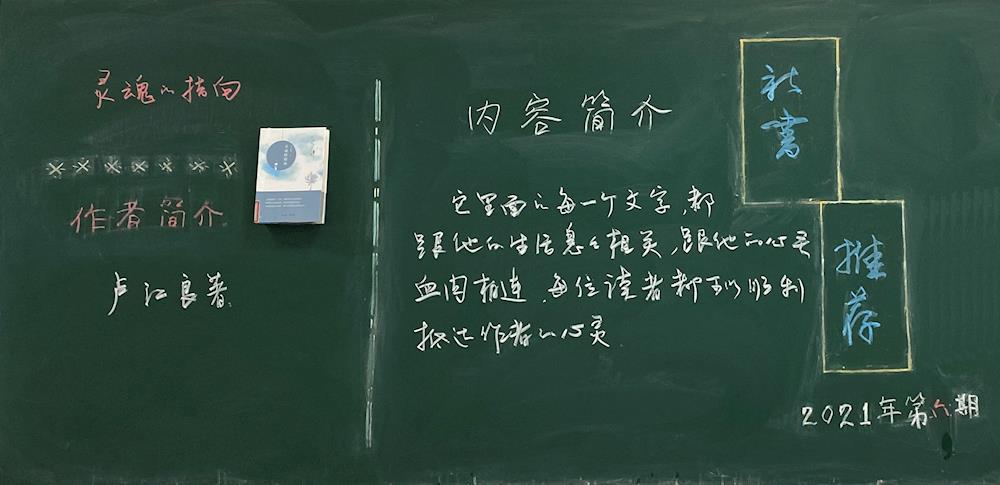 灵魂的指向
×××××××
作者简介
卢江良著.
内容简介
它里面的每一个文字,都
跟他的生活息々相关,跟他的心灵
血肉相连.每位读者都可以顺利
抵达作者的心灵.
新书
推荐
2021年第六期